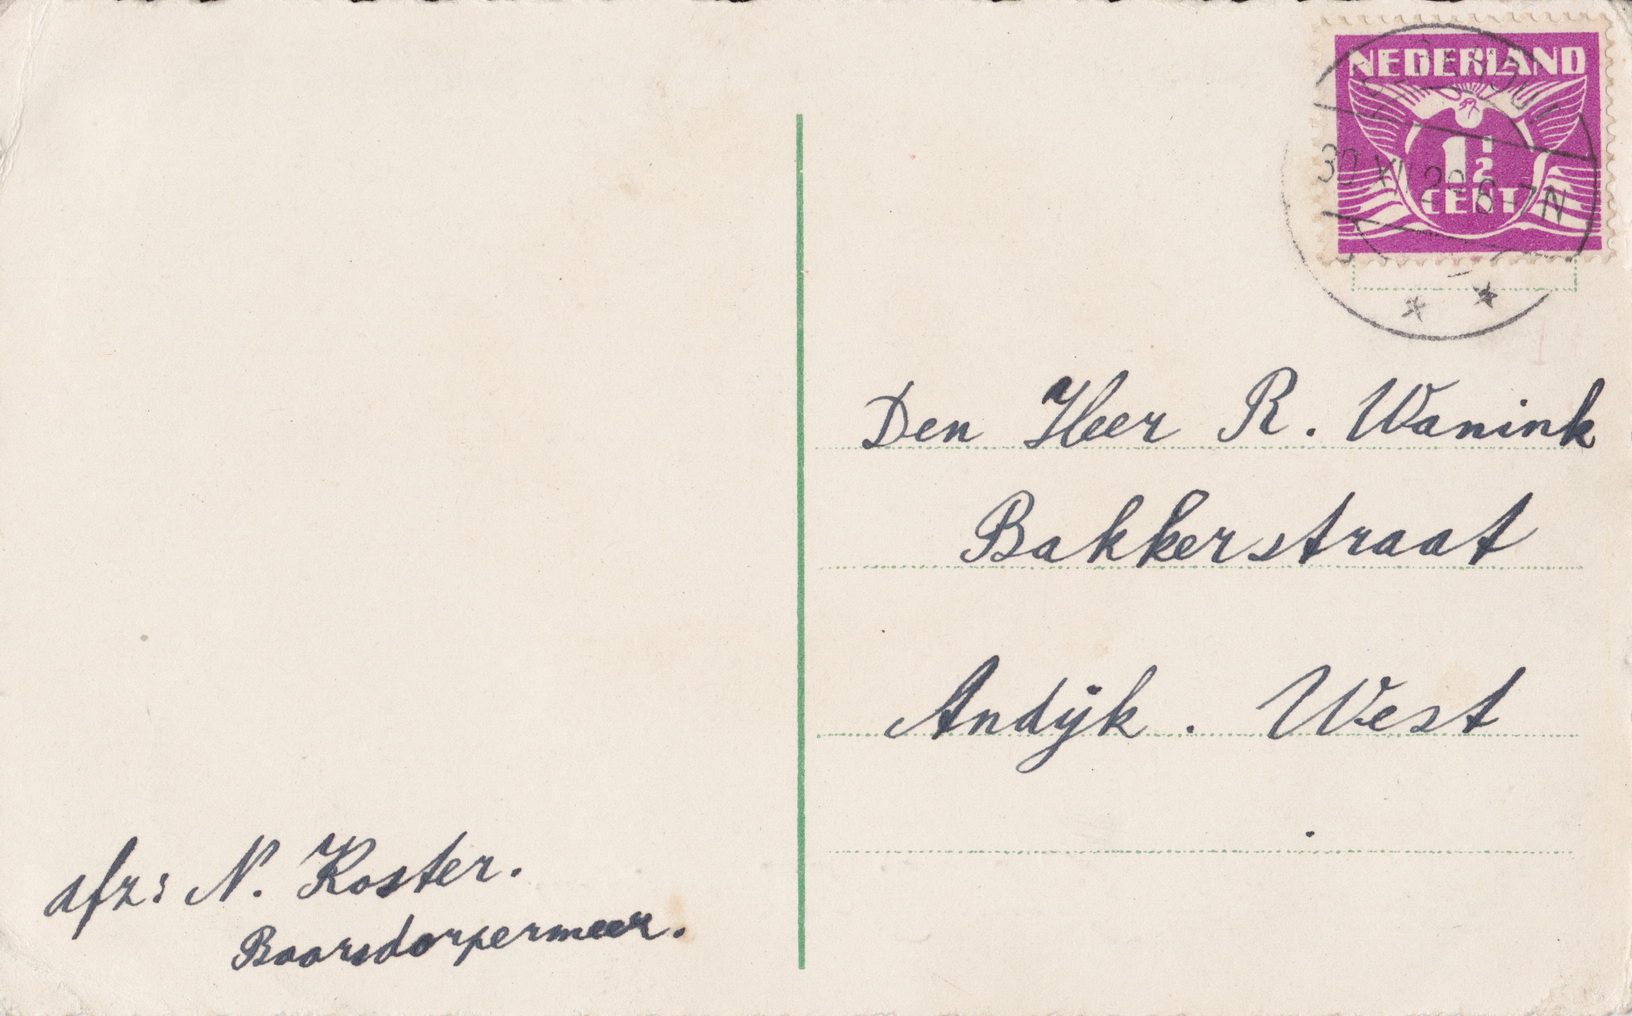 NEDERLAND
1½
CENT
6-7N
Den Heer R. Wanink
Bakkerstraat
Andijk. West
afz: N. Koster.
Baarsdorpermeer.